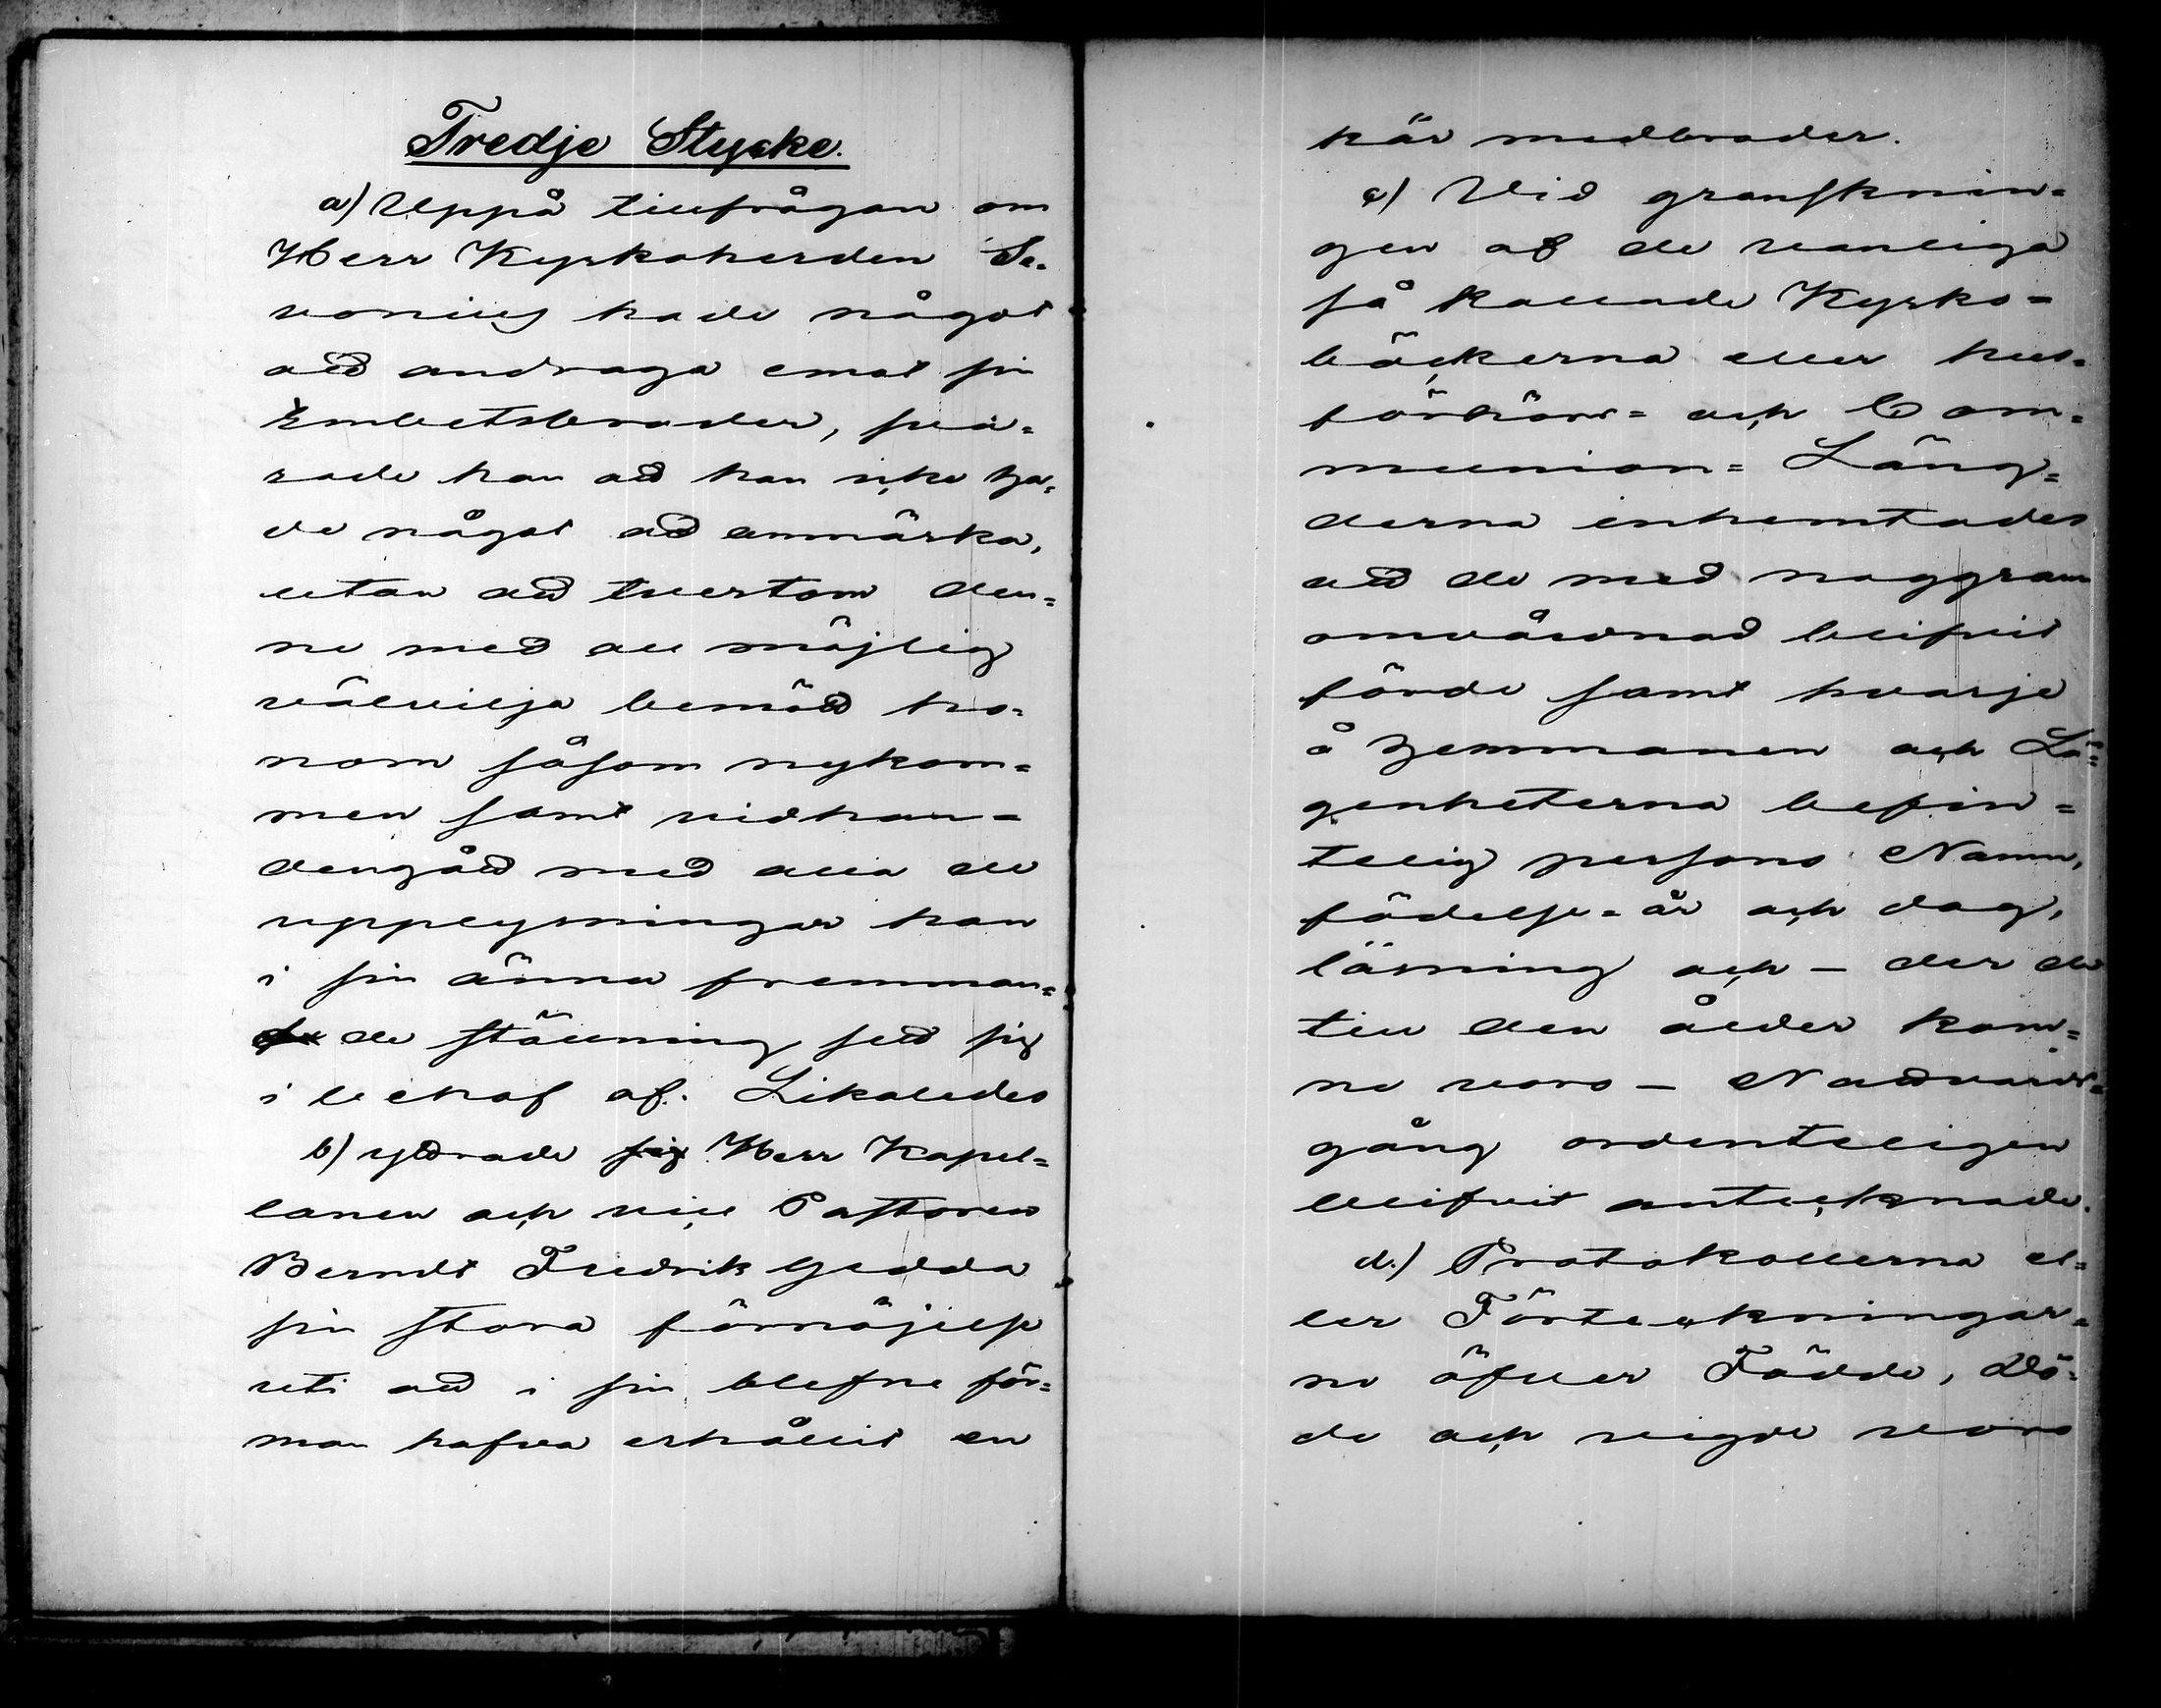 Tredje Stycke.
a) Uppå tillfrågan om
Herr Kyrkoherden Se=
ronius hade något
att andraga emot sin
Embetsbroder, sva=
rade han att han icke ha=
de något att anmärka,
utan att tvertom den=
ne med all möjlig
välvilja bemött ho=
nom såsom nykom=
men samt vidhan=
dengått med alla de
upplysningar han
i sin ännu fremman=
de ställning sett sig
i behof af. Likaledes
b) yttrade sig Herr Kapel=
lanen och vice Pastoren
Berndt Fredrik Gedda
sin stora förnöjelse
uti att i sin blefne för=
man hafva erhållit en
kär medbroder.
c) Vid gransknin=
gen af de vanliga
så kallade Kyrko=
böckerna eller hus=
förhörs= och Com=
munion= Läng=
derna inhemtades
att de med noggrann
omvårdnad blifvit
förde samt hvarje
å hemmanen och Lä=
genheterna befin=
tlig persons Namn,
födelse=år och dag,
läsning och - der de
till den ålder kom=
ne voro - Nattvards=
gång ordentligen
blifvit antecknade.
d.) Protokollerna el=
ler Förteckningar=
ne öfver Födde, Dö=
de och vigde voro